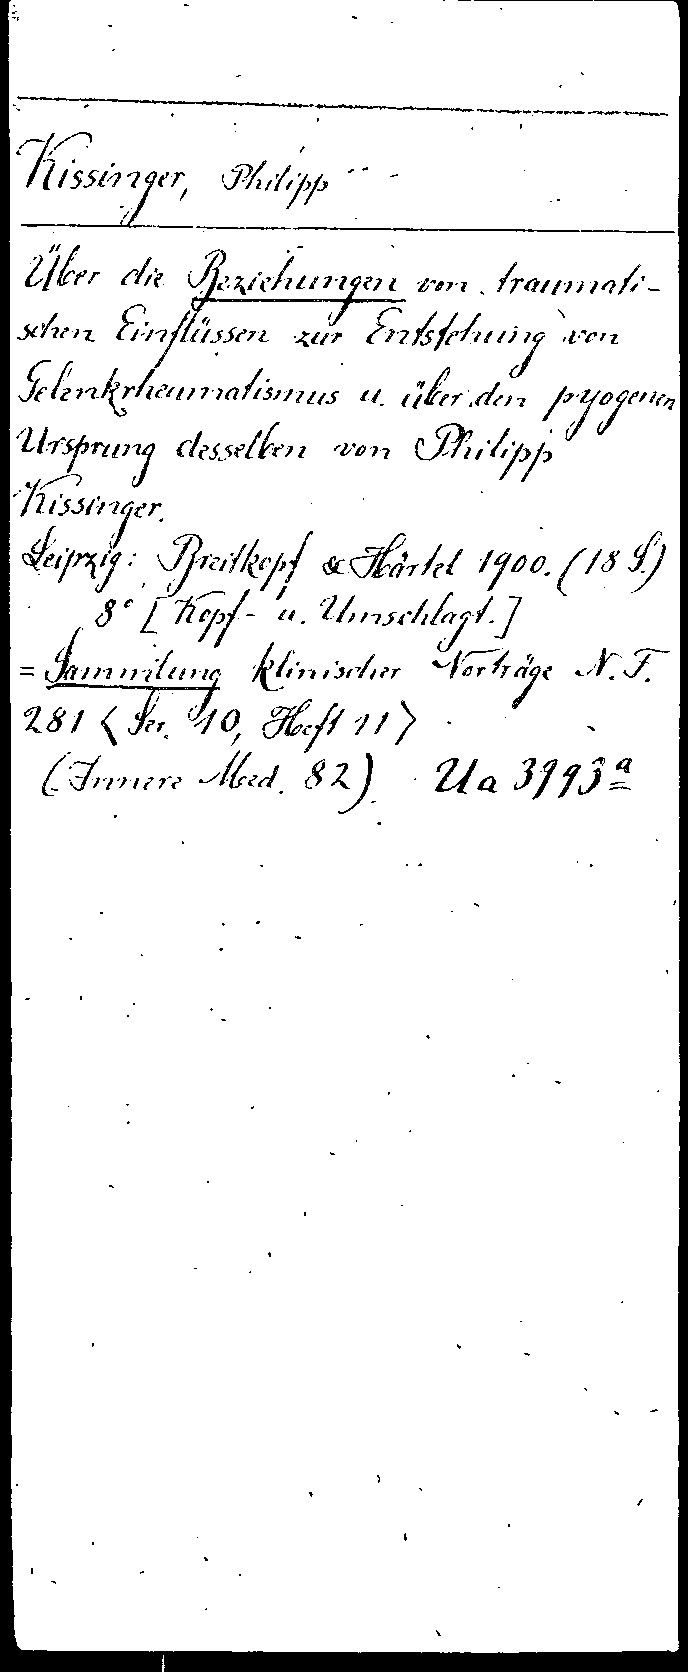 Kissinger, Philipp
Über die Beziehungen von traumati-
schen Einflüssen zur Entstehung von
Gelenkrheumatismus u. über den pyogenen
Ursprung desselben von Philipp
Kissinger.
Leipzig: Breitkopf & Härtel 1900. (18 S.)
8° [Kopf- u. Umschlagt.]
= Sammlung klinischer Vorträge N. F.
281 < Ser. 10, Heft 11 >
(Innere Med. 82) Ua 3993ª